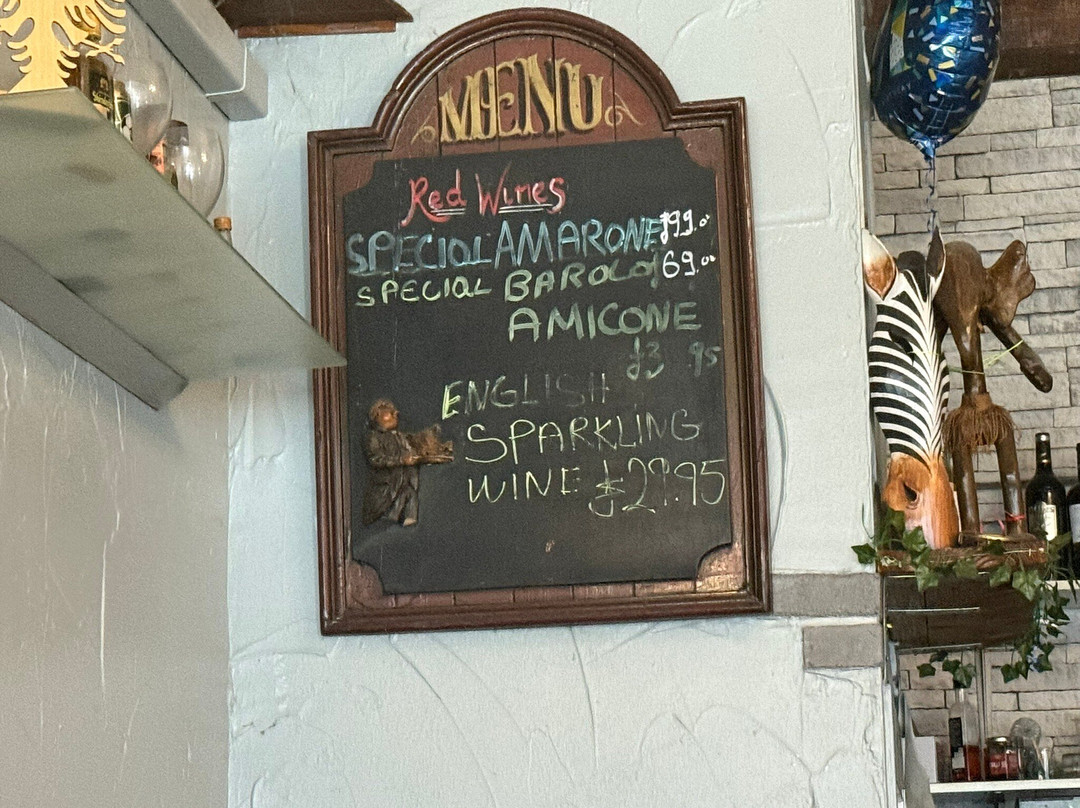 MENU
Red Wines
SPECIAL AMARONE £99.00
SPECIAL BAROLO £69.00
AMICONE
£3 95
ENGLISH
SPARKLING
WINE £29.95